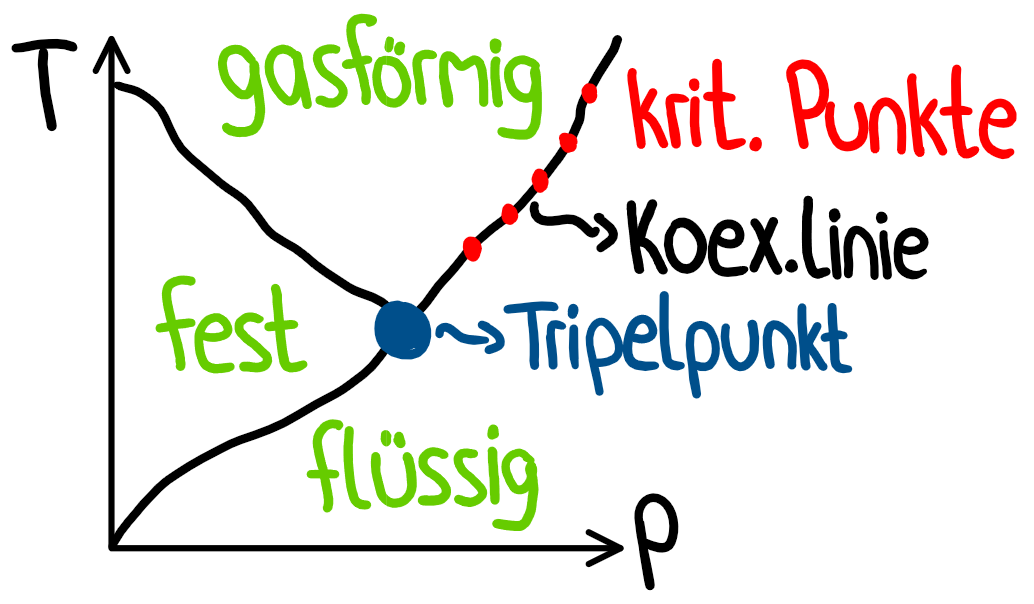 T
gasförmig
krit. Punkte
Koex.linie
fest
Tripelpunkt
flüssig
p